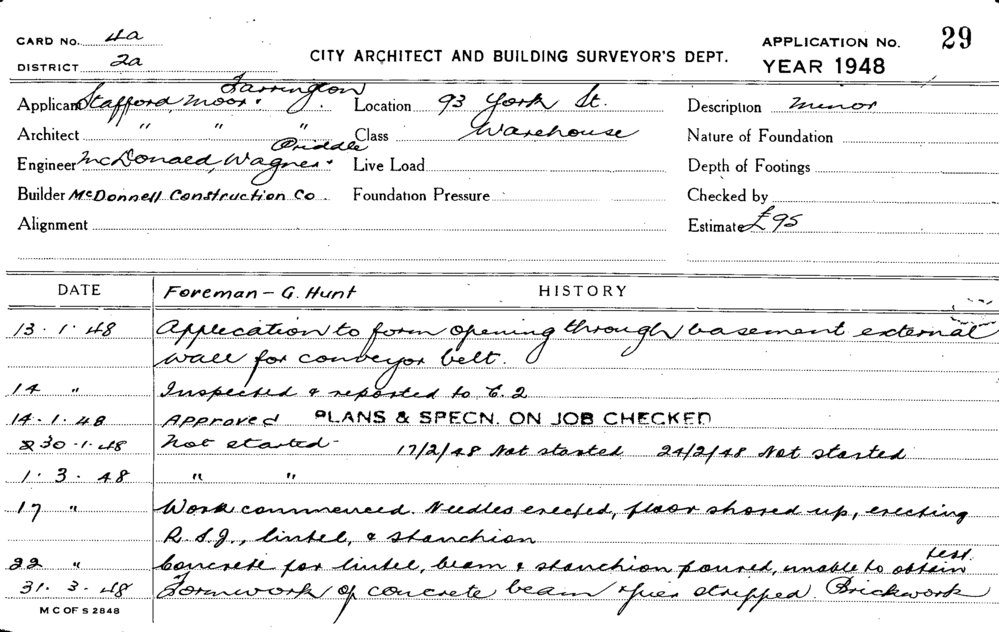 CARD No. 4a
DISTRICT 2a
CITY ARCHITECT AND BUILDING SURVEYOR'S DEPT.
APPLICATION No. 29
YEAR 1948
Applicant Stafford, Moor & Farrington
Location 93 York St.
Description minor
Architect " " "
Class Warehouse
Nature of Foundation
Engineer McDonald, Wagner & Priddle
Live Load
Depth of Footings
Builder McDonnell Construction Co.
Foundation Pressure
Checked by
Alignment
Estimate £95
DATE
Foreman - G. Hunt
HISTORY
13.1.48 Application to form opening through basement external
wall for conveyor belt.
14 " Inspected & reported to C.2
14.1.48 Approved PLANS & SPECN. ON JOB CHECKED
30.1.48 Not started - 17/2/48 Not started 24/2/48 Not started
1.3.48 " "
17 " Work commenced. Needles erected, floor shored up, erecting
R.S.J., lintel, & stanchion
22 " Concrete for lintel, beam & stanchion poured, unable to obtain test.
31.3.48 Formwork of concrete beam & pier stripped. Brickwork
M C OF S 2848